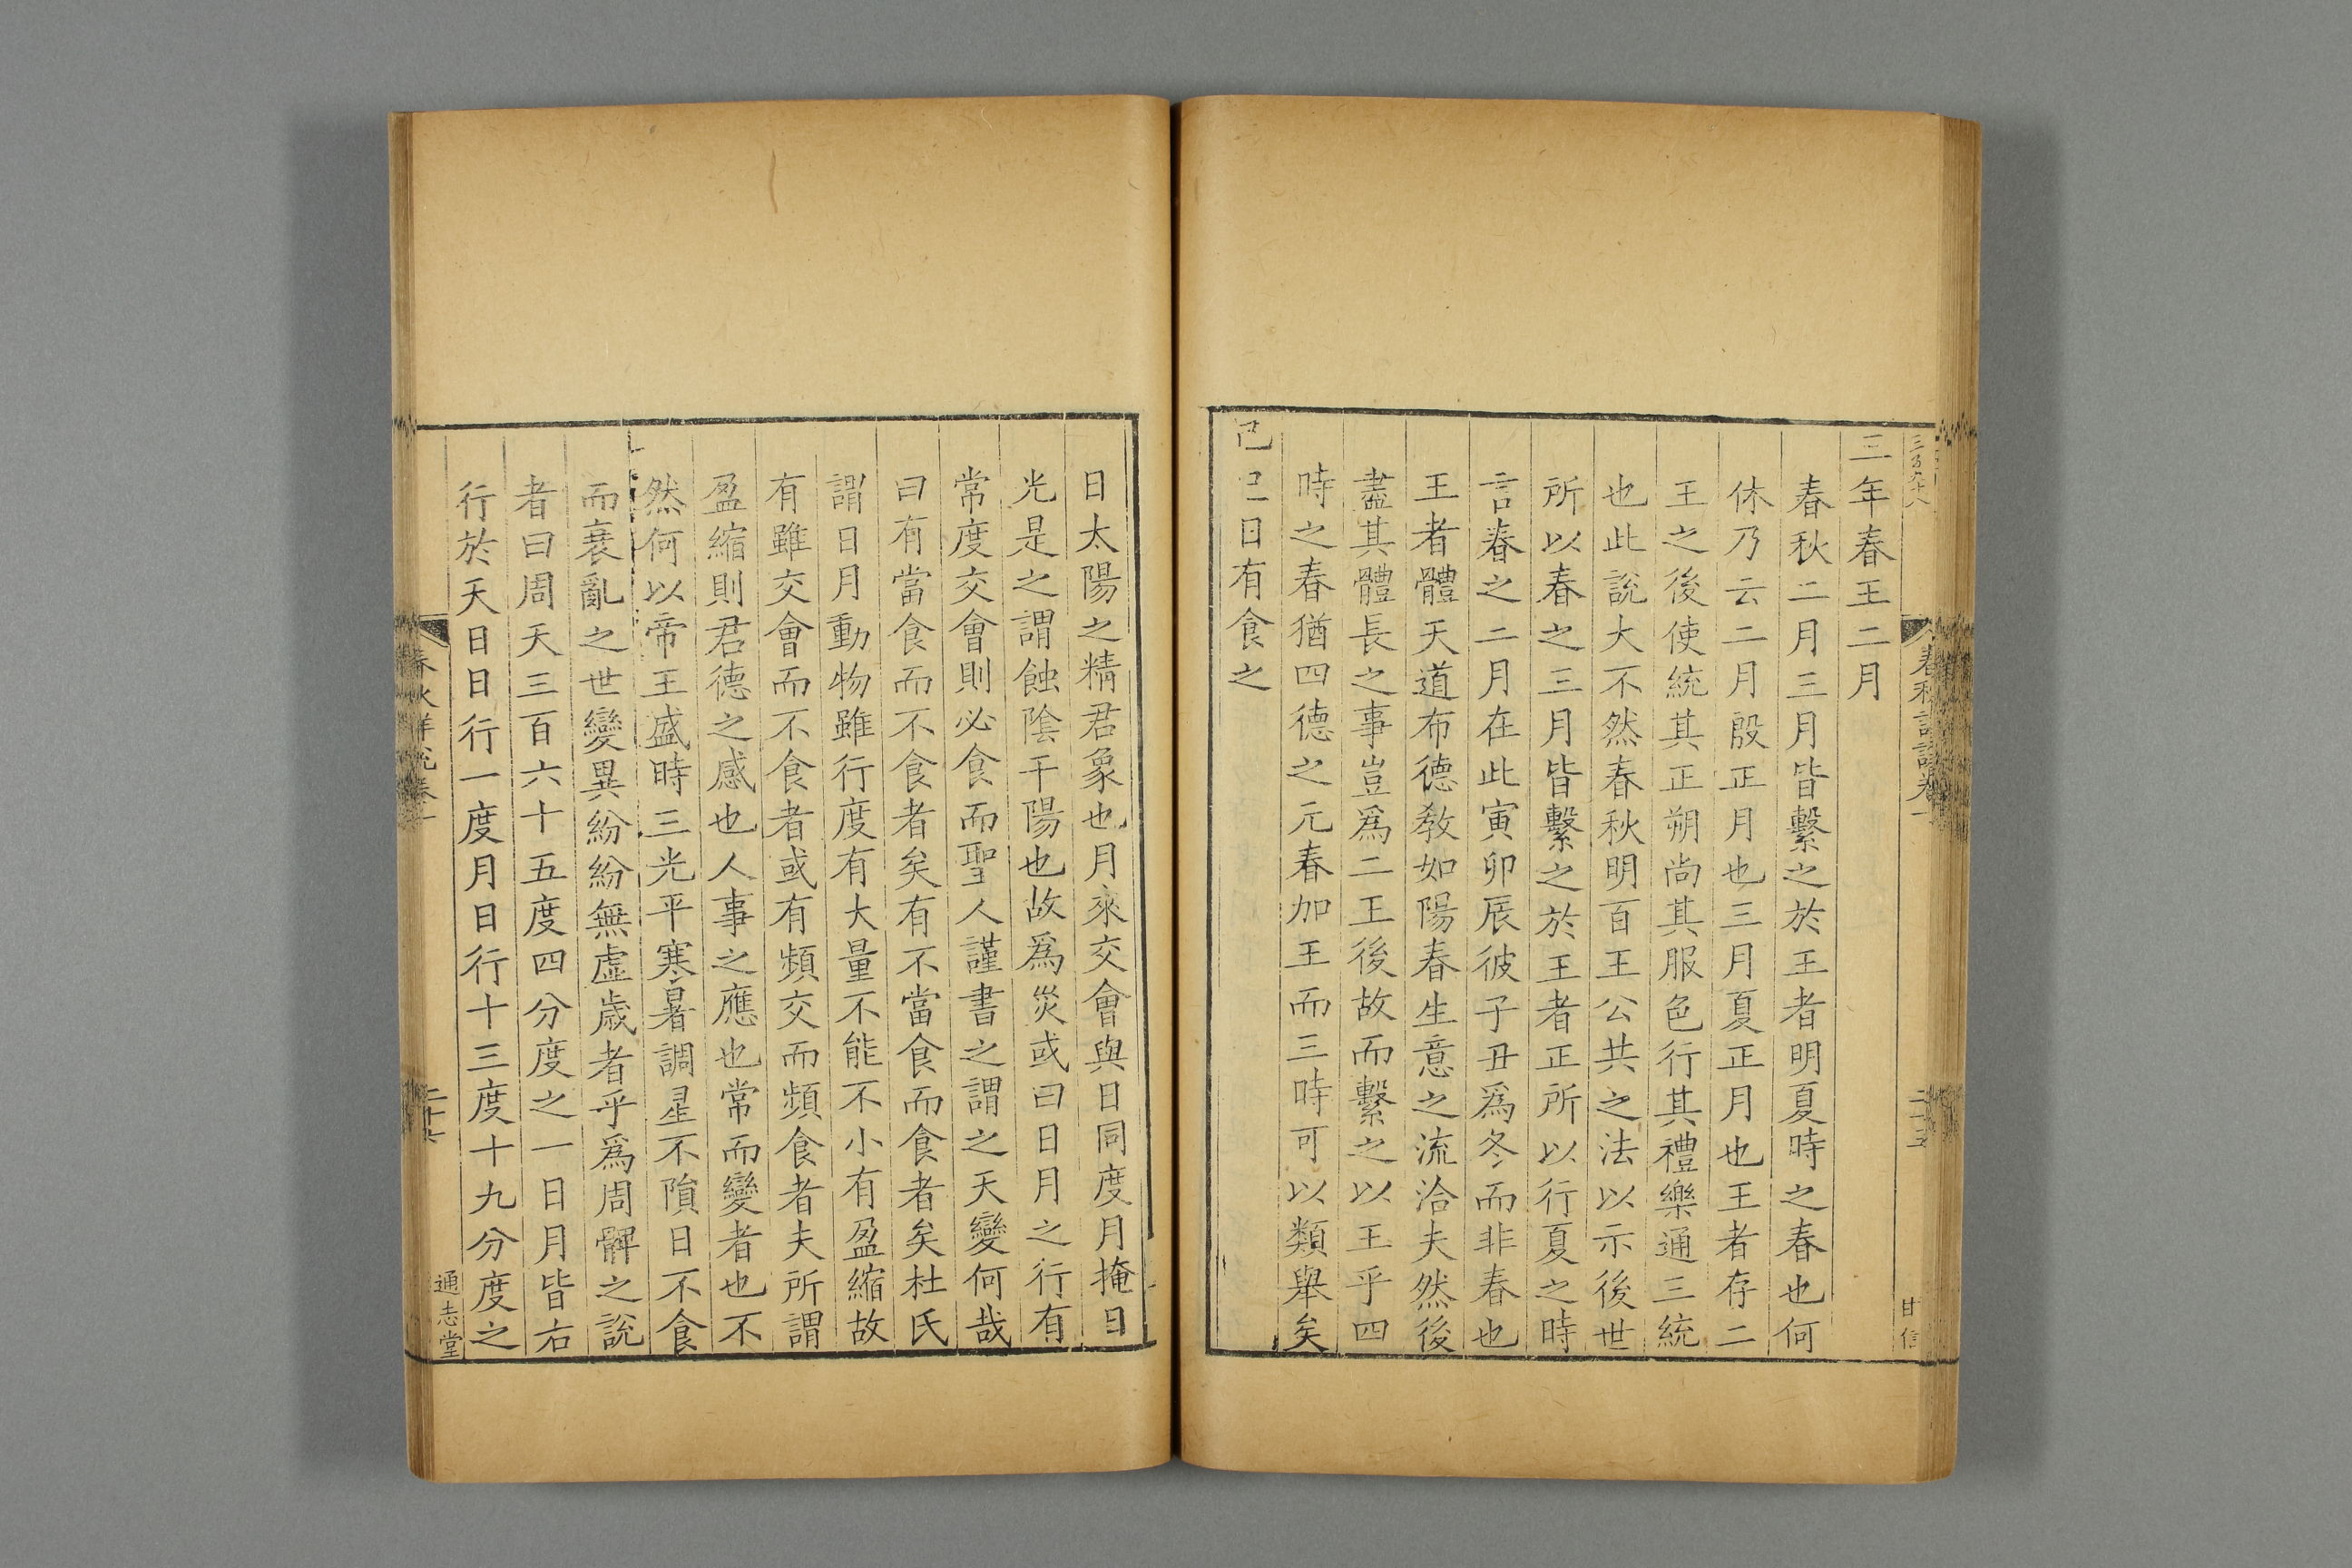 三年春王二月
春秋二月三月皆繫之於王者明夏時之春也何
休乃云二月殷正月也三月夏正月也王者存二
王之後使統其正朔尚其服色行其禮樂通三統
也此說大不然春秋明百王公共之法以示後世
所以春之三月皆繫之於王者正所以行夏之時
言春之二月在此寅卯辰彼子丑爲冬而非春也
王者體天道布德教如陽春生意之流洽夫然後
盡其體長之事豈爲二王後故而繫之以王乎四
時之春猶四德之元春加王而三時可以類舉矣
己巳日有食之
甘信
日太陽之精君象也月來交會與日同度月掩日
光是之謂蝕陰干陽也故爲災或曰日月之行有
常度交會則必食而聖人謹書之謂之天變何哉
曰有當食而不食者矣有不當食而食者矣杜氏
謂日月動物雖行度有大量不能不小有盈縮故
有雖交會而不食者或有頻交而頻食者夫所謂
盈縮則君德之感也人事之應也常而變者也不
然何以帝王盛時三光平寒暑調星不隕日不食
而衰亂之世變異紛紛無虛歲者乎爲周髀之說
者曰周天三百六十五度四分度之一日月皆右
行於天日日行一度月日行十三度十九分度之
通志堂